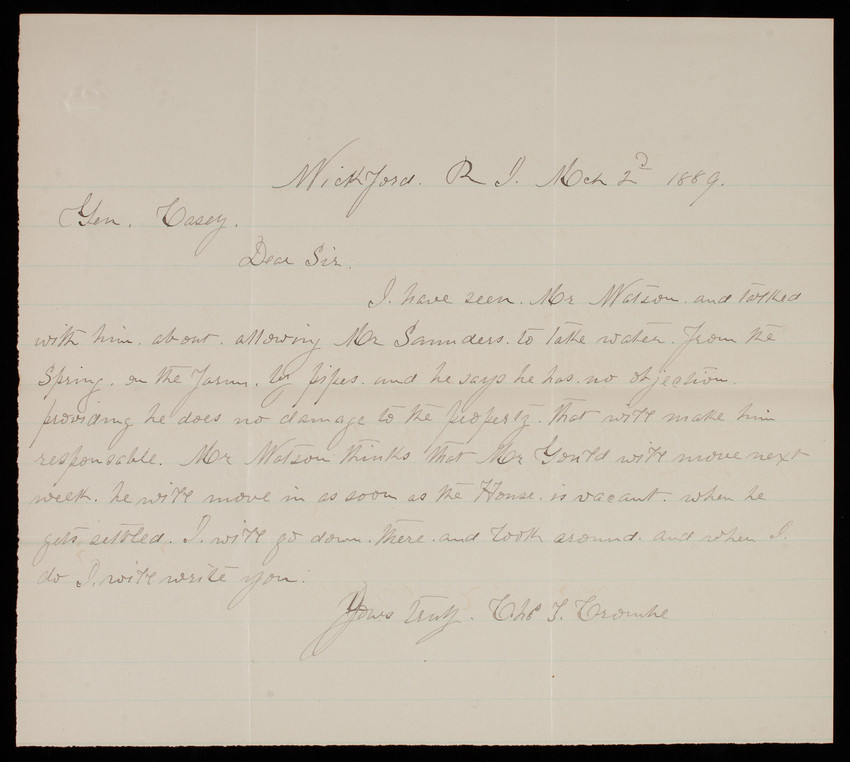 Wickford. R I. Mch 2d 1889.
Gen. Casey.
Dear Sir.
I. have seen. Mr Watson. and talked
with him. about. allowing Mr Saunders. to take water. from the
Spring. on the Farm. by pipes. and he says he has. no objection.
providing he does no damage to the property. that will make him
responsable. Mr Watson thinks that Mr Gould will move next
week. he will move in as soon as the House. is vacant. when he
gets settled. I. will go down. there. and look around. and when I.
do I. will write you.
Yours truly. Chs T. Crombe